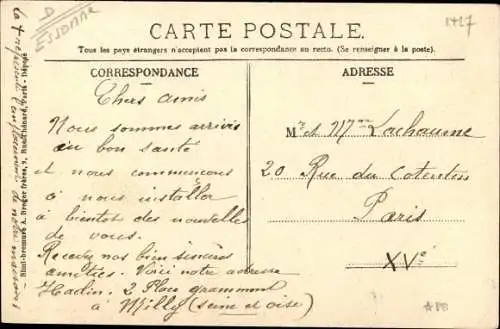 D
ESSONNE
1427
CARTE POSTALE.
Tous les pays étrangers n'acceptent pas la correspondance au recto. (Se renseigner à la poste).
CORRESPONDANCE
Chers amis
Nous sommes arrivés
en bon santé
et nous commençons
à nous installer
à bientôt des nouvelles
de vous.
Recevez nos bien sincères
amitiés. Voici notre adresse
Hadin. 2 Place grammont
à Milly (seine et oise)
ADRESSE
Mr et Mme Lachaume
20 Rue du Cotentin
Paris
XVe
la + représente l'emplacement de notre maison
Dreger frères, Paris - Déposé